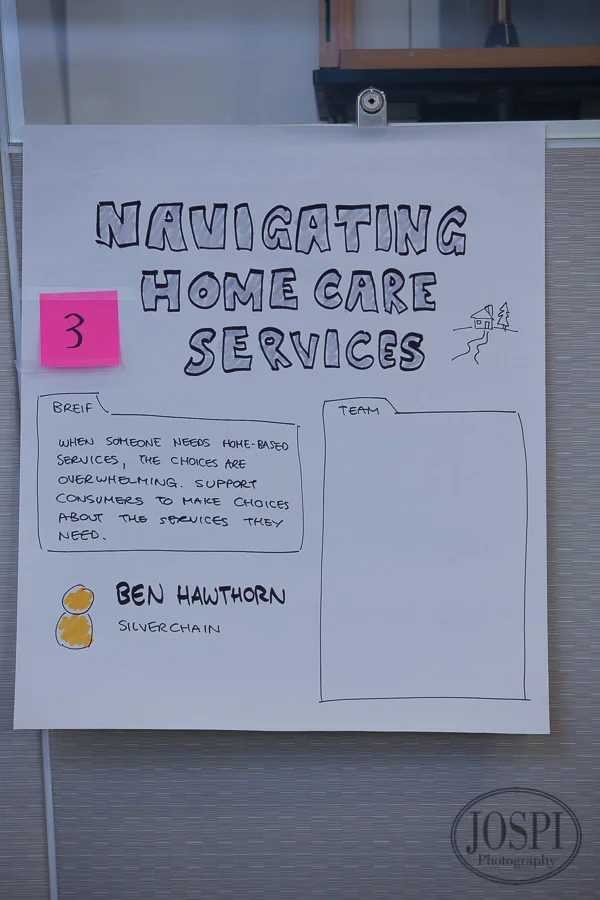 NAVIGATING
HOME CARE
SERVICES
3
BREIF
WHEN SOMEONE NEEDS HOME-BASED
SERVICES, THE CHOICES ARE
OVERWHELMING. SUPPORT
CONSUMERS TO MAKE CHOICES
ABOUT THE SERVICES THEY
NEED.
TEAM
BEN HAWTHORN
SILVERCHAIN
JOSPI
Photography